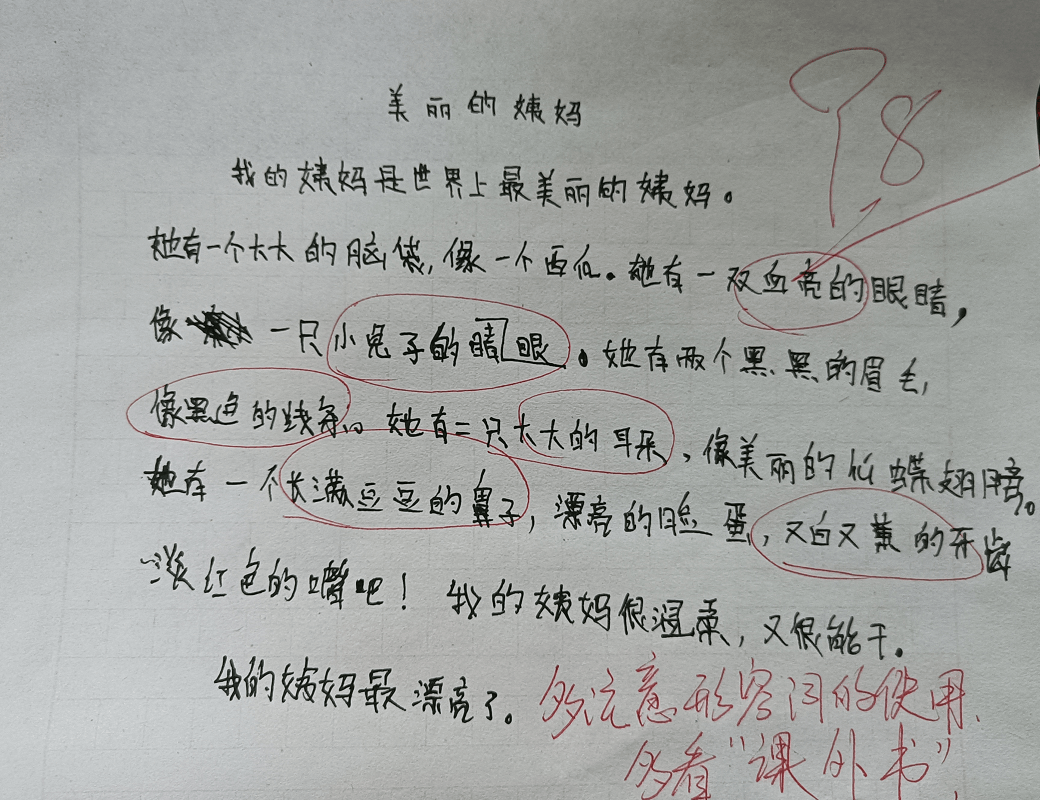 美丽的姨妈
78
我的姨妈是世界上最美丽的姨妈。
她有一个大大的脑袋,像一个西瓜。她有一双血亮的眼睛,
像一只小兔子的睛眼。她有两个黑黑的眉毛,
像黑色的线条。她有二只大大的耳朵,像美丽的 蝴蝶翅膀。
她有一个长满豆豆的鼻子,漂亮的脸蛋,又白又黄的牙齿
淡红色的嘴吧!我的姨妈很温柔,又很能干。
我的姨妈最漂亮了。
多注意形容词的使用.
多看“课外书”.